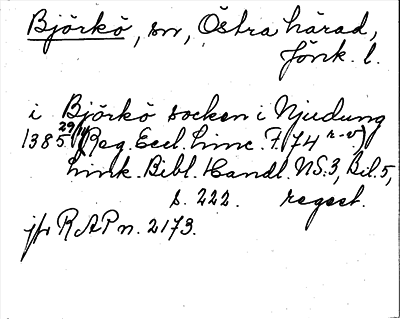 Björkö, sn, Östra härad,
Jönk. l.
i Björkö socken i Njudung
1385 29/11 (Reg. Eccl. Linc. F. 74 r-v)
Link. Bibl. Handl. NS. 3, Bil. 5,
s. 222. regest.
jfr RAP n. 2173.